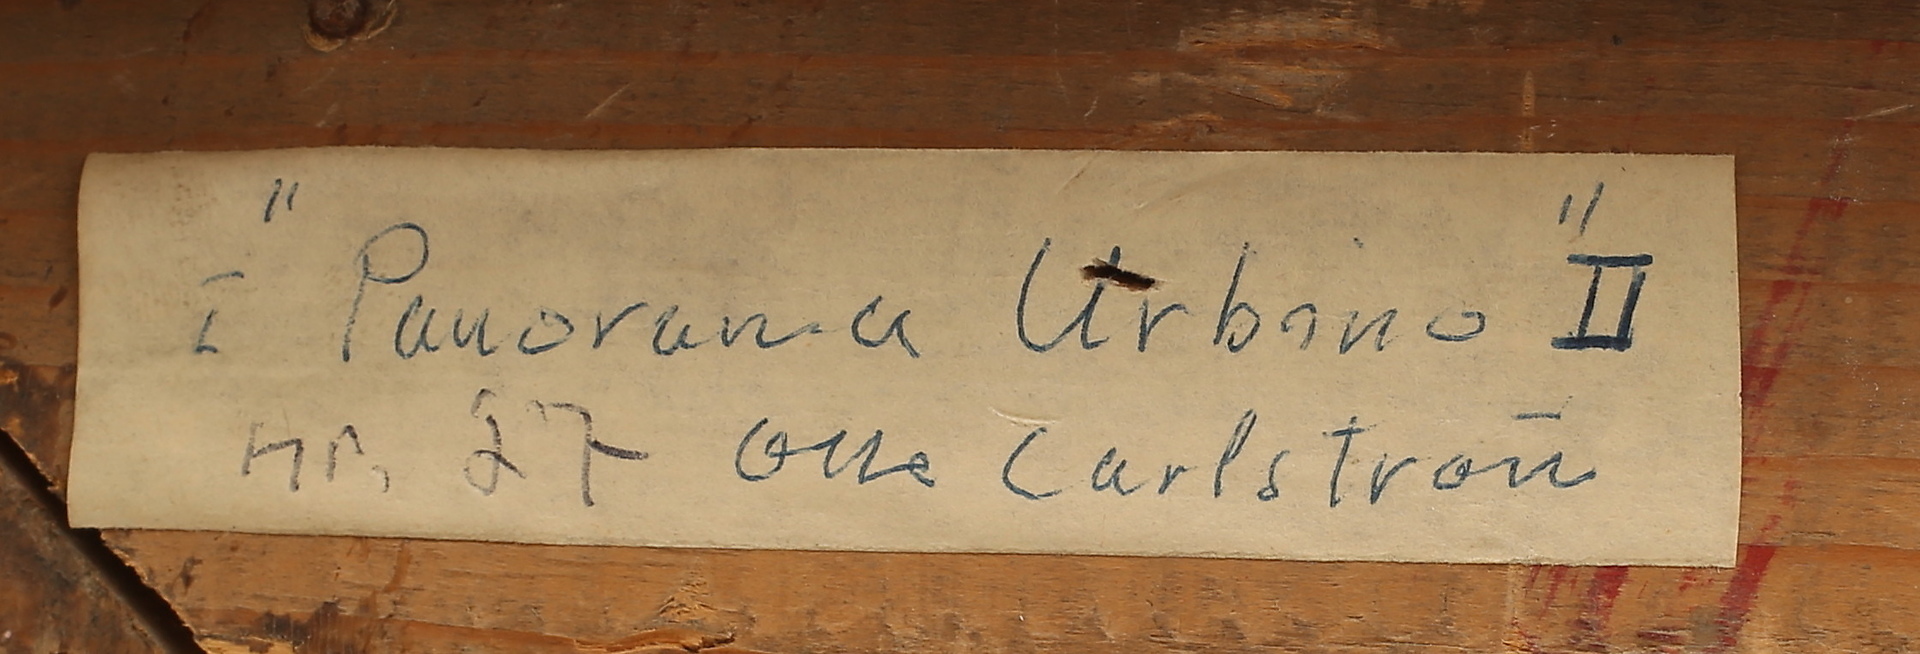 I "Panorama Urbino" II
Nr. 27 Olle Carlström